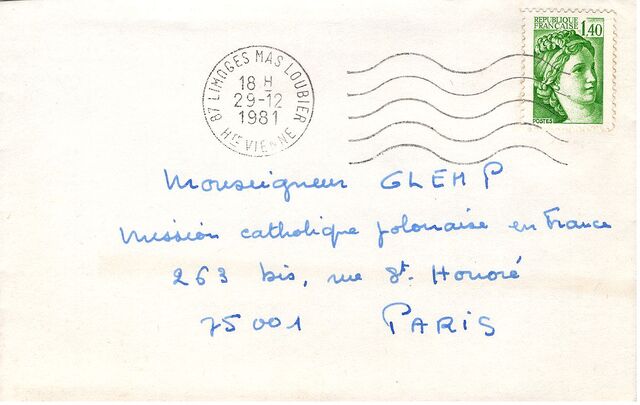 REPUBLIQUE
FRANÇAISE
1,40
POSTES
87 LIMOGES MAS LOUBIER
18 H
29-12
1981
HTE VIENNE
Monseigneur GLEMP
Mission catholique polonaise en France
263 bis, rue St. Honoré
75001 PARIS